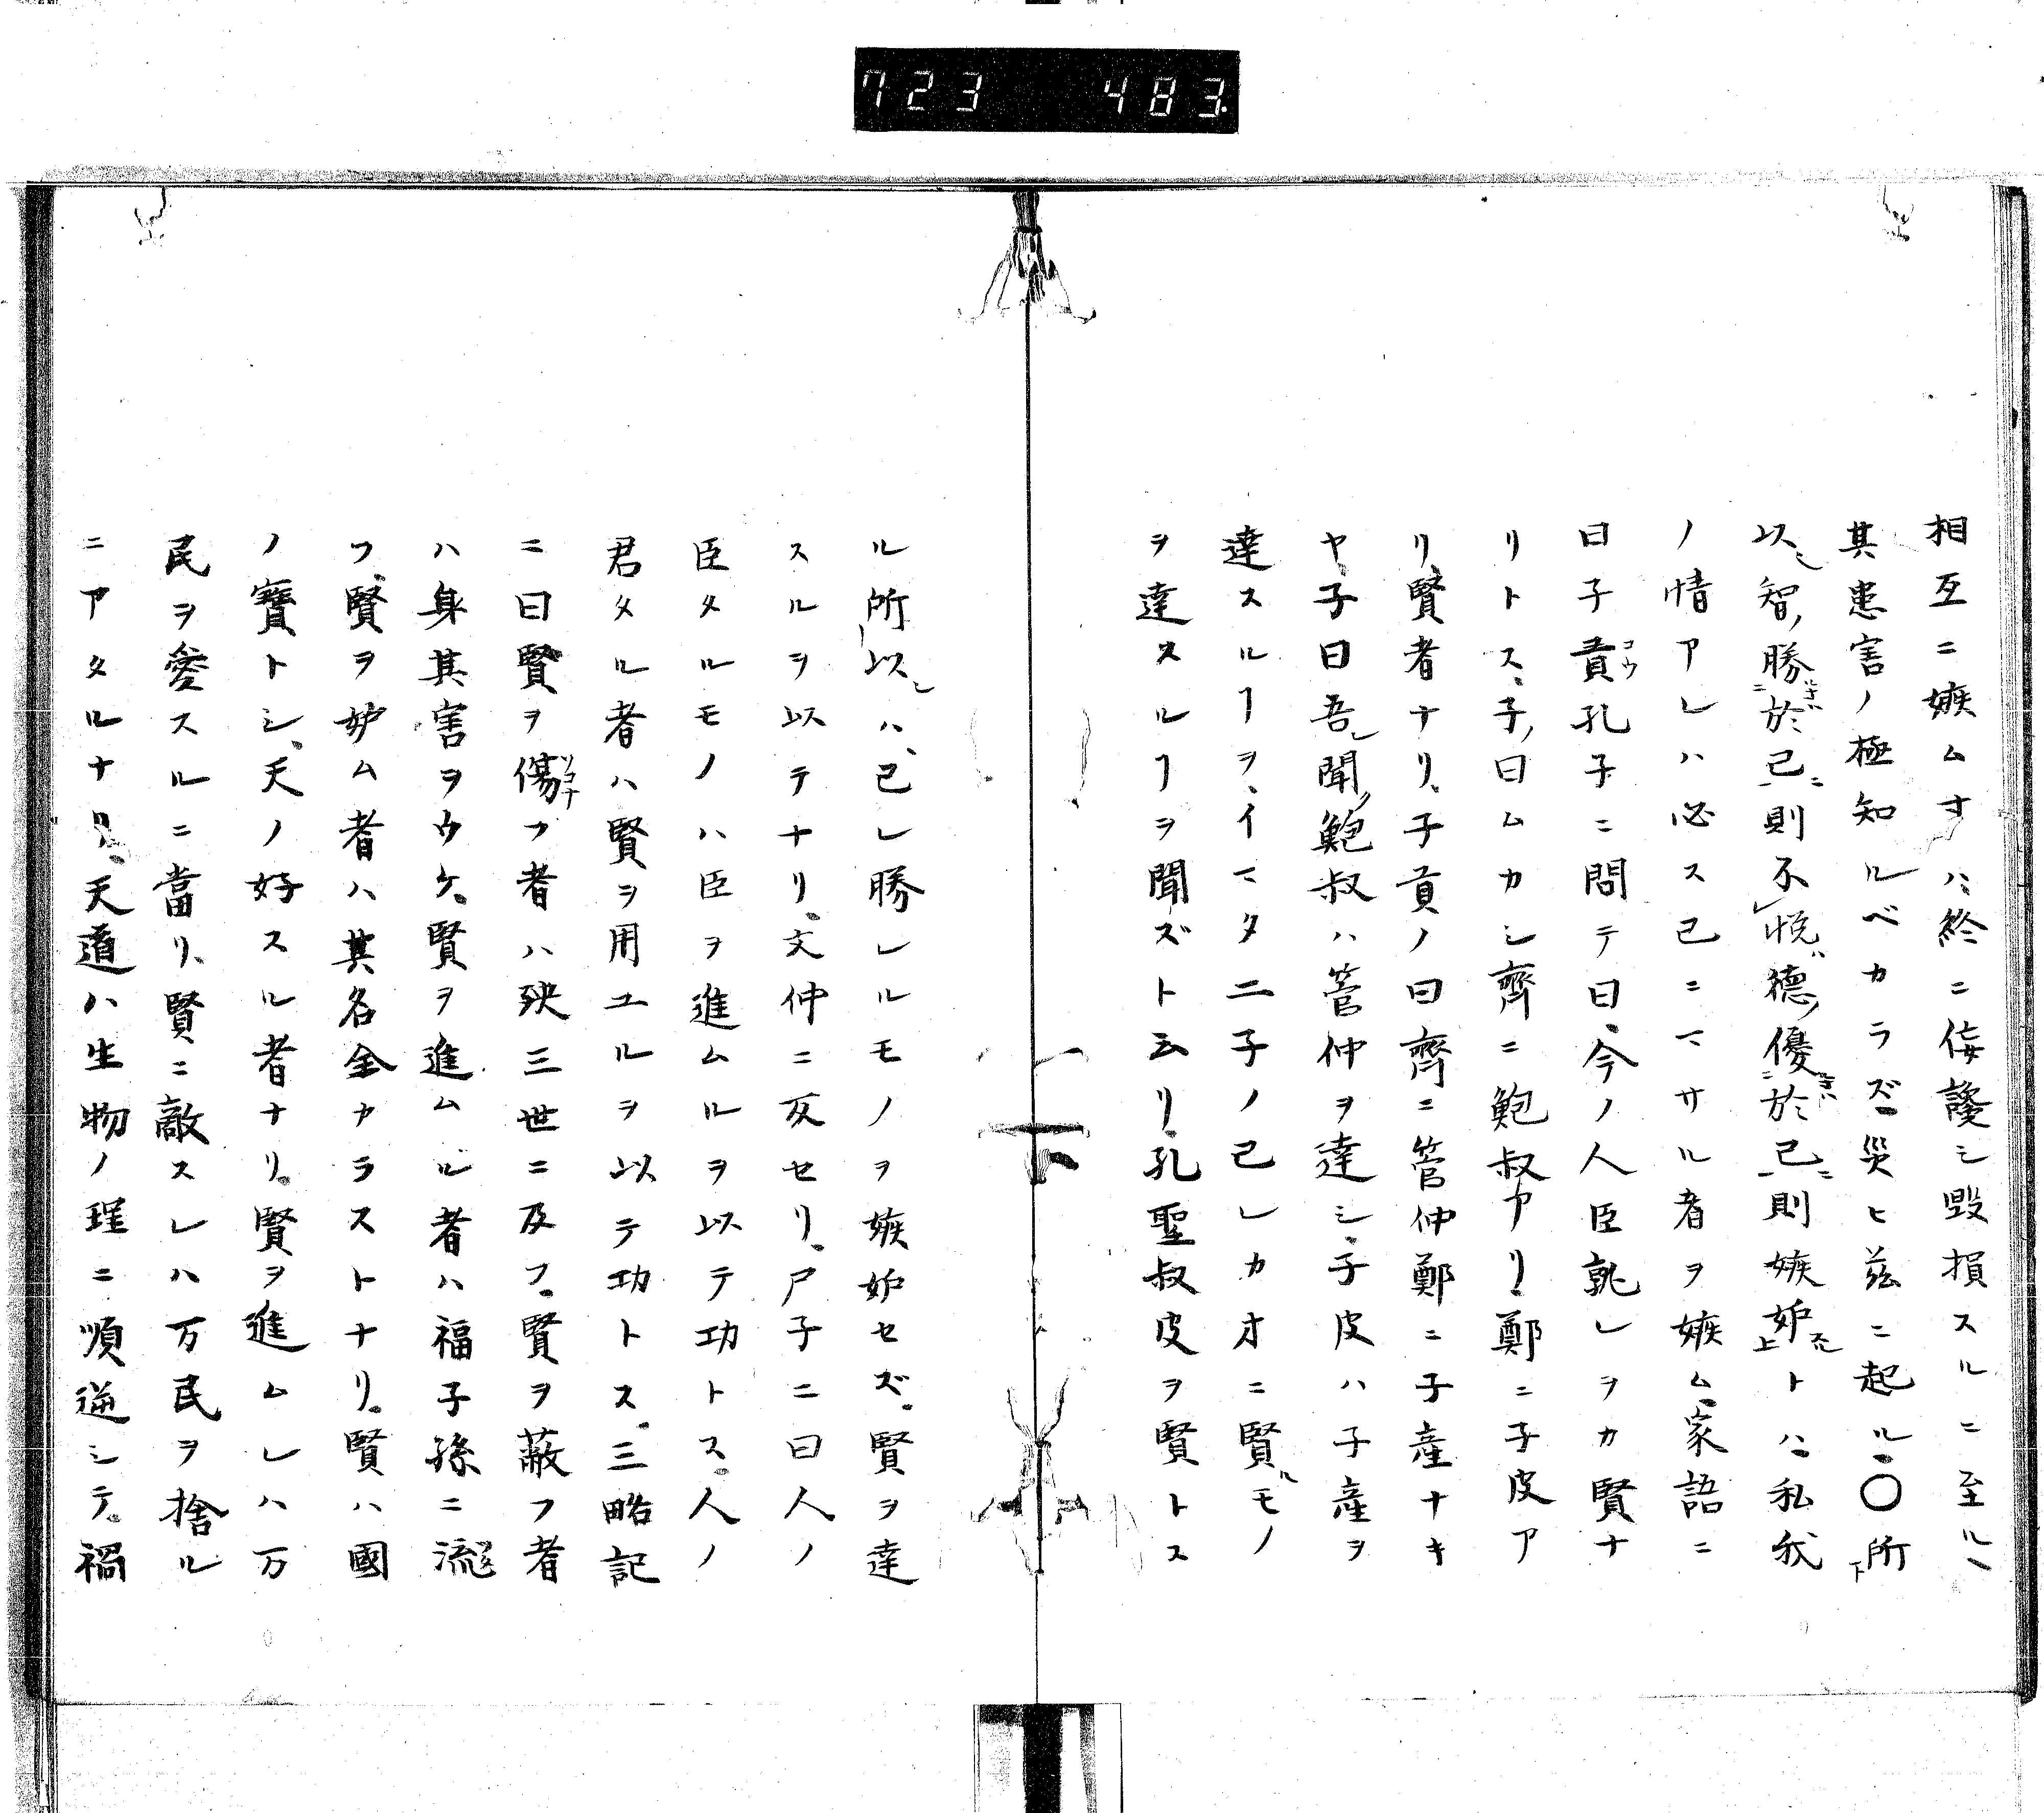 723 483.
相互ニ嫉ムすハ終ニ侫讒シ毀損スルニ至ル、
其患害ノ極知ルベカラズ災ヒ茲ニ起ル○所
以智勝於己則不悦徳優於己則嫉妬トハ私我
ノ情アレハ必ス己ニマサル者ヲ嫉ム家語ニ
曰子貢孔子ニ問テ曰今ノ人臣孰レヲカ賢ナ
リトス子曰ムカシ齊ニ鮑叔アリ鄭ニ子皮ア
リ賢者ナリ子貢ノ曰齊ニ管仲鄭ニ子産ナキ
ヤ子曰吾聞鮑叔ハ管仲ヲ達シ子皮ハ子産ヲ
達スルヿヲイマタ二子ノ己レカオニ賢ルモノ
ヲ達スルヿヲ聞ズト云リ孔聖叔皮ヲ賢トス
ル所以ハ己レ勝レルモノヲ嫉妬セズ賢ヲ達
スルヲ以テナリ文仲ニ反セリ尸子ニ曰人ノ
臣タルモノハ臣ヲ進ムルヲ以テ功トス人ノ
君タル者ハ賢ヲ用ユルヲ以テ功トス三略記
ニ曰賢ヲ傷フ者ハ殃三世ニ及フ賢ヲ蔽フ者
ハ身其害ヲウケ賢ヲ進ムル者ハ福子孫ニ流
フ賢ヲ妒ム者ハ其名全カラストナリ賢ハ國
ノ寳トシ天ノ好スル者ナリ賢ヲ進ムレハ万
民ヲ愛スルニ當リ賢ニ敵スレハ万民ヲ捨ル
ニアタルナリ天道ハ生物ノ理ニ順逆シテ禍